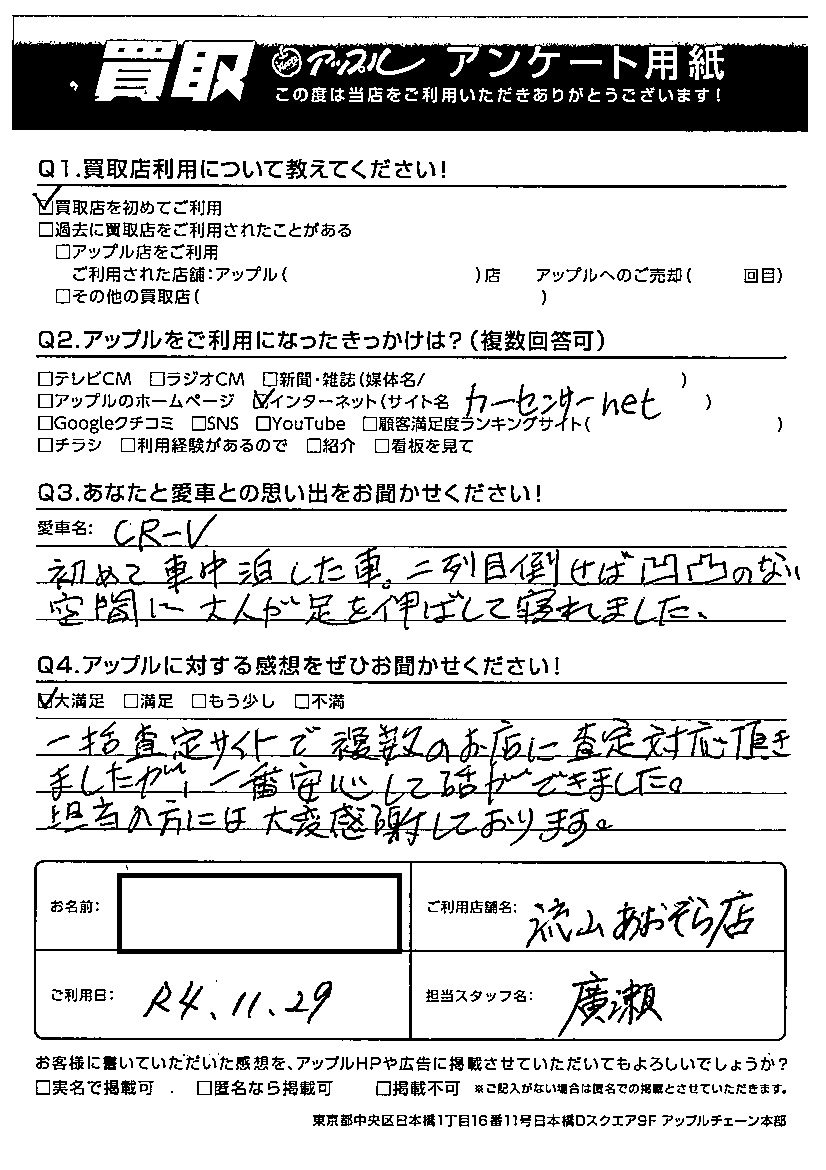 買取 アップル アンケート用紙
この度は当店をご利用いただきありがとうございます!
Q1.買取店利用について教えてください!
☑買取店を初めてご利用
□過去に買取店をご利用されたことがある
□アップル店をご利用
ご利用された店舗:アップル( )店 アップルへのご売却( 回目)
□その他の買取店( )
Q2.アップルをご利用になったきっかけは?(複数回答可)
□テレビCM □ラジオCM □新聞・雑誌(媒体名/ )
□アップルのホームページ ☑インターネット(サイト名 カーセンサーnet )
□Googleクチコミ □SNS □YouTube □顧客満足度ランキングサイト( )
□チラシ □利用経験があるので □紹介 □看板を見て
Q3.あなたと愛車との思い出をお聞かせください!
愛車名: CR-V
初めて車中泊した車。二列目倒せば凹凸のない
空間に大人が足を伸ばして寝れました、
Q4.アップルに対する感想をぜひお聞かせください!
☑大満足 □満足 □もう少し □不満
一括査定サイトで複数のお店に査定対応頂き
ましたが、一番安心して話ができました。
担当の方には大変感謝しております。
お名前: ご利用店舗名: 流山あおぞら店
ご利用日: R4.11.29 担当スタッフ名: 廣瀬
お客様に書いていただいた感想を、アップルHPや広告に掲載させていただいてもよろしいでしょうか?
□実名で掲載可 . □匿名なら掲載可 □掲載不可 ※ご記入がない場合は匿名での掲載とさせていただきます。
東京都中央区日本橋1丁目16番11号日本橋Dスクエア9F アップルチェーン本部